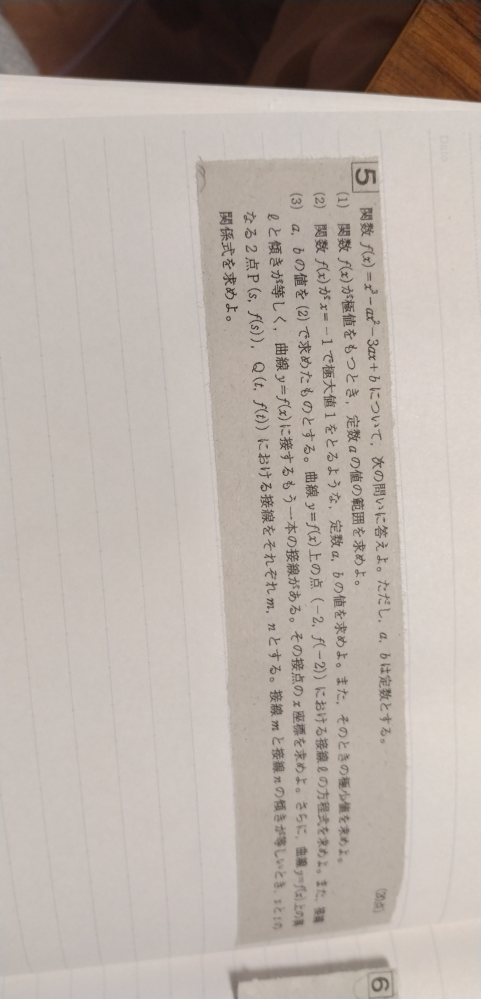 5 関数 f(x)=x³-ax²-3ax+b について、次の問いに答えよ。ただし、a, b は定数とする。 (20点)
(1) 関数 f(x) が極値をもつとき、定数 a の値の範囲を求めよ。
(2) 関数 f(x) が x=-1 で極大値1をとるような、定数 a, b の値を求めよ。また、そのときの極小値を求めよ。
(3) a, b の値を(2)で求めたものとする。曲線 y=f(x) 上の点 (-2, f(-2)) における接線 ℓ の方程式を求めよ。また、接線
ℓ と傾きが等しく、曲線 y=f(x) に接するもう一本の接線がある。その接点の x 座標を求めよ。さらに、曲線 y=f(x) 上の異
なる2点 P(s, f(s)), Q(t, f(t)) における接線をそれぞれ m, n とする。接線 m と接線 n の傾きが等しいとき、s と t の
関係式を求めよ。
6